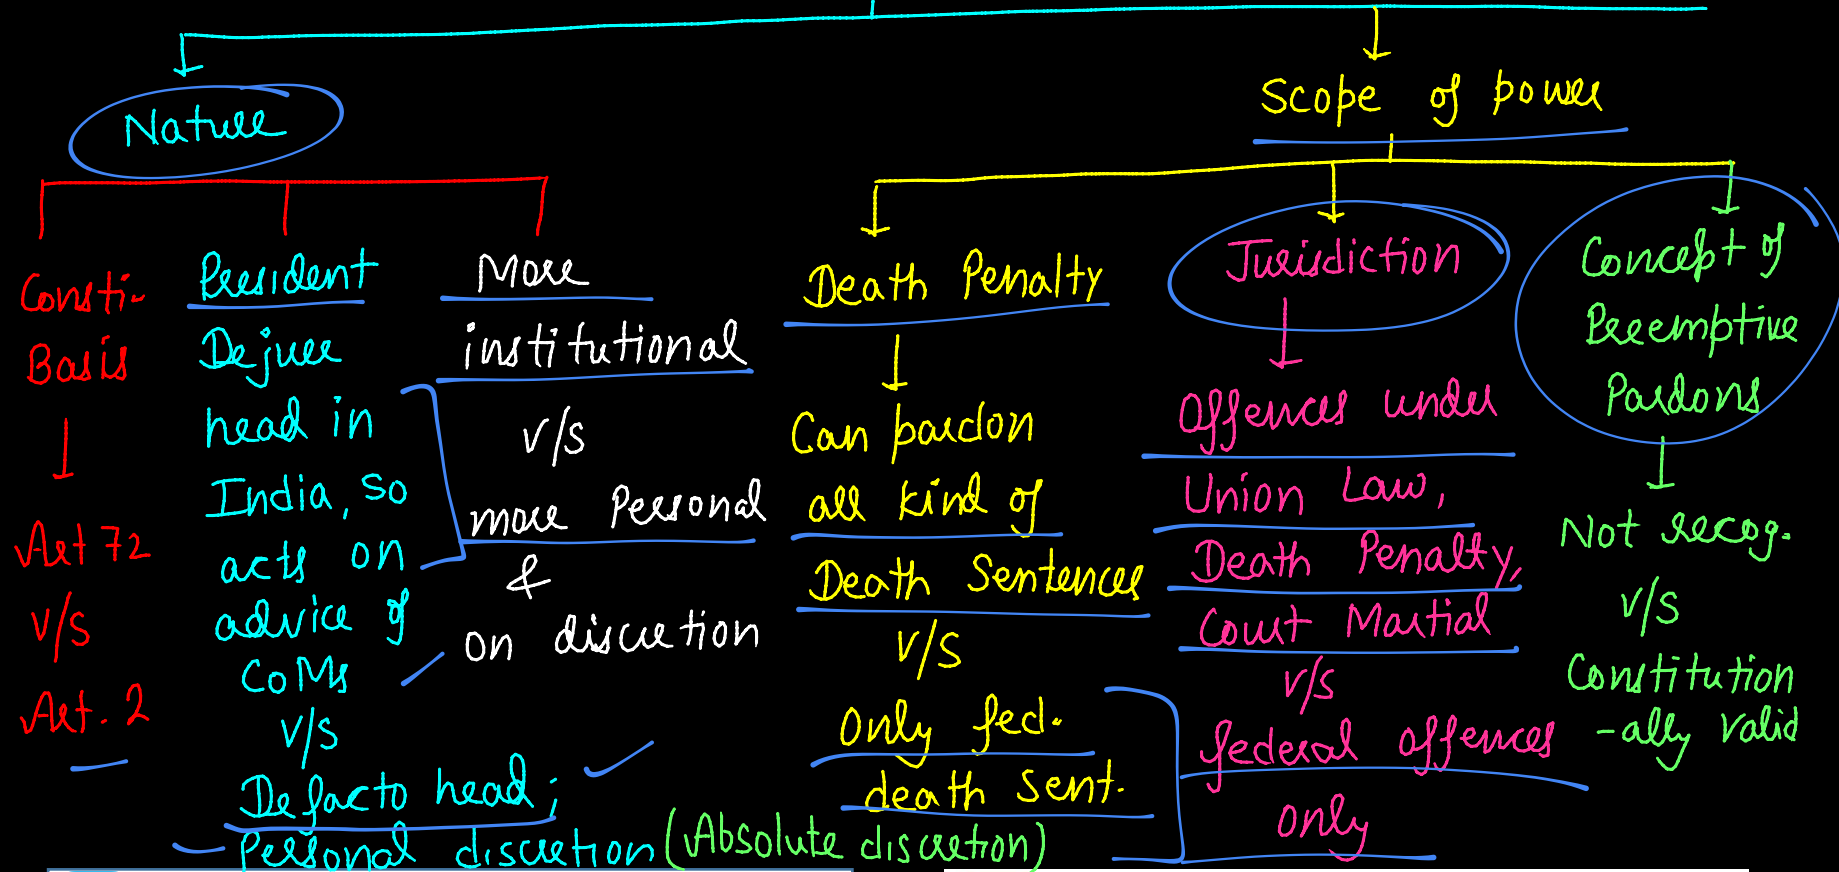 Nature
Scope of power
Consti-
Basis
Art 72
v/s
Art. 2
President
Dejure
head in
India, so
acts on
advice of
CoMs
v/s
Defacto head;
Personal discretion (Absolute discretion)
More
institutional
v/s
more Personal
&
on discretion
Death Penalty
Can pardon
all kind of
Death Sentences
v/s
Only fed.
death Sent.
Jurisdiction
Offences under
Union Law,
Death Penalty,
Court Martial
v/s
federal offences
only
Concept of
Preemptive
Pardons
Not recog.
v/s
Constitution
-ally valid